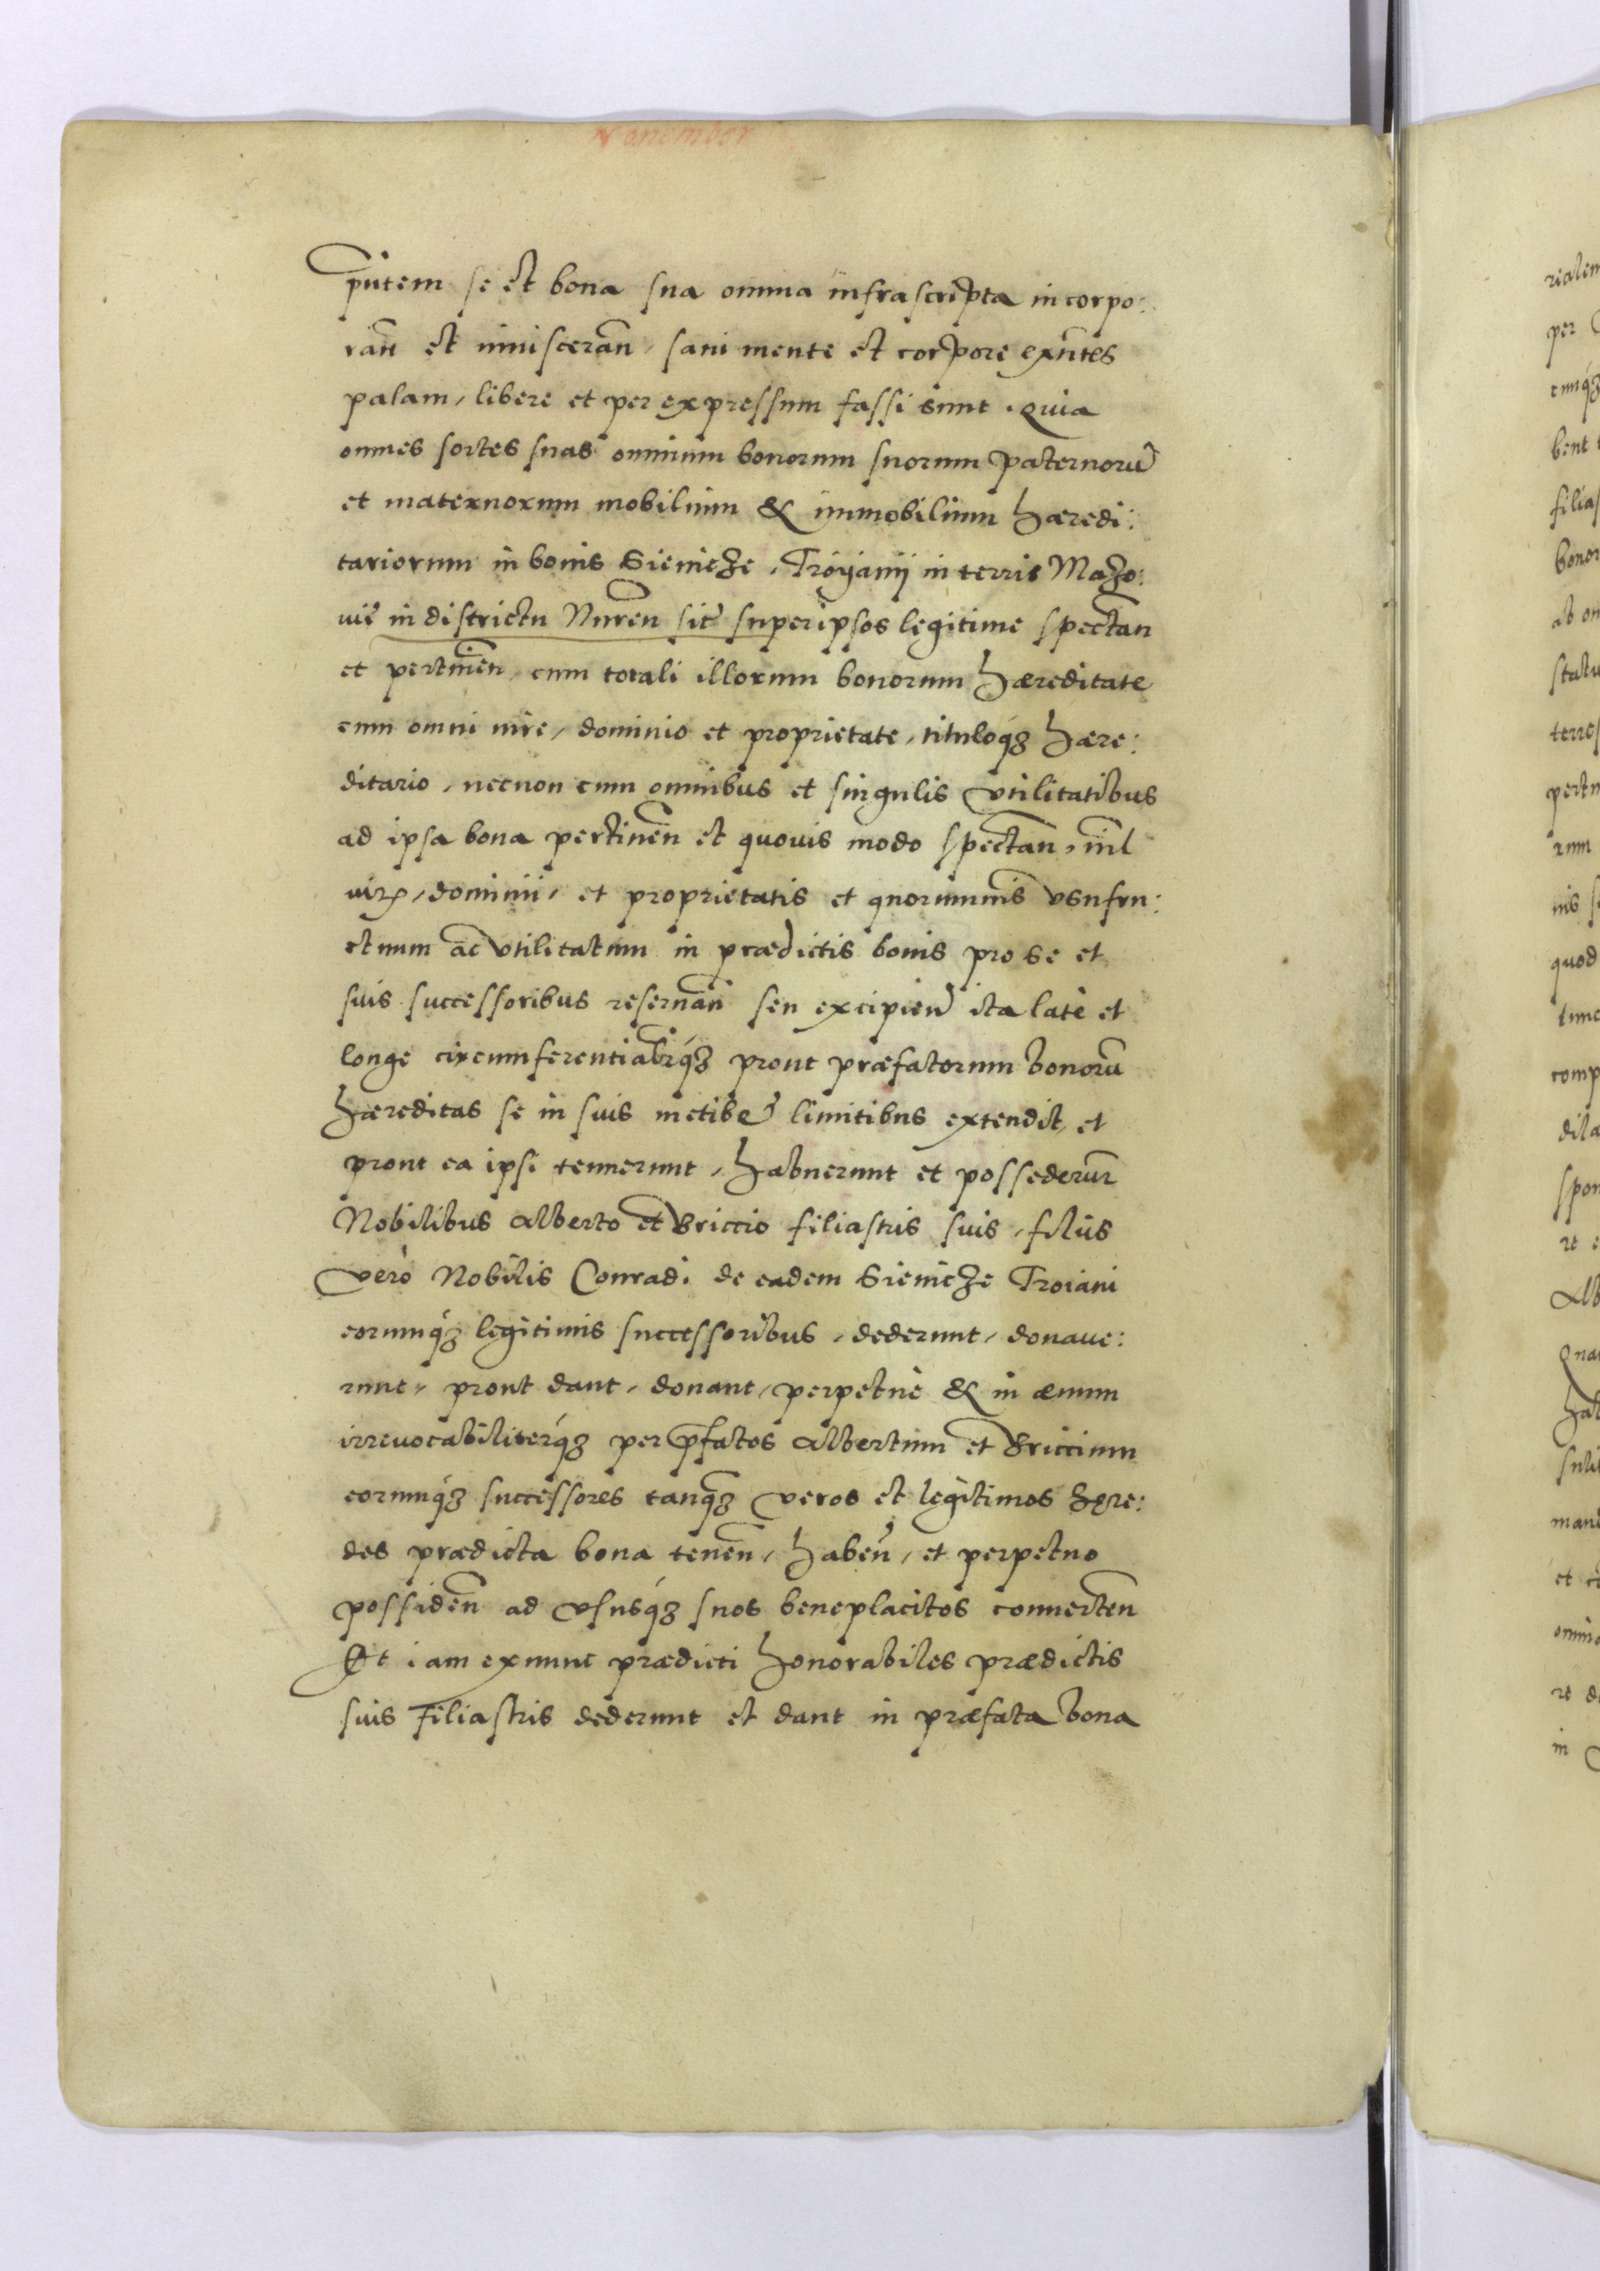 Nouember
pñtem se et bona sua omnia infrascripta incorpo:
rañ et inuiscerañ, sani mente et corpore exñtes
palam, libere et per expressum fassi sunt. Quia
omnes sortes suas omnium bonorum suorum paternorũ
et maternorum mobilium & immobilium hæredi:
tariorum in bonis Sienicze, Troyanij in terris Mazo:
uiẽ in districtu Nureñ sitẽ super ipsos legitime spectañ
et pertineñ, cum totali illorum bonorum hæreditate
cum omni iure, dominio et proprietate, tituloq́ʒ hære:
ditario, necnon cum omnibus et singulis vtilitatibus
ad ipsa bona pertineñ et quouis modo spectañ, nil
iurꝭ, dominii, et proprietatis et quorumuis vsufru:
ctuum ac vtilitatum in prædictis bonis pro se et
suis successoribus reseruañ seu excipieñ ita latè et
longe circumferentiabrq́ʒ prout præfatorum bonorũ
hæreditas se in suis metibꝫ limitibus extendit, et
prout ea ipsi tenuerunt, habuerunt et possederunt
Nobilibus Alberto et Briccio filiastris suis, filiis
verò Nobilis Conradi de eadem Sienicze Troiani
eorumq́ʒ legitimis successoribus, dederunt, donaue:
runt, prout dant, donant, perpetuè & in æuum
irreuocabiliterq́ʒ per p̃fatos Albertum et Briccium
eorumq́ʒ successores tanq̃ʒ veros et legitimos hęre:
des prædicta bona teneñ, habeñ, et perpetuo
possideñ ad vsusq́ʒ suos beneplacitos conuerteñ
Et iam exnunc prædicti honorabiles prædictis
suis Filiastris dederunt et dant in præfata bona